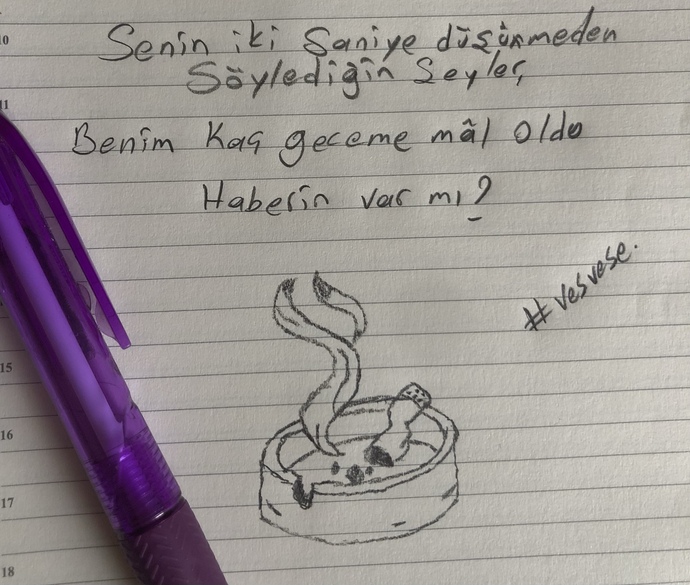 10
Senin iki Saniye düşünmeden
Söylediğin Şeyler
11
Benim Kaç geceme mâl oldu
Haberin var mı?
#vesvese.
15
16
17
18